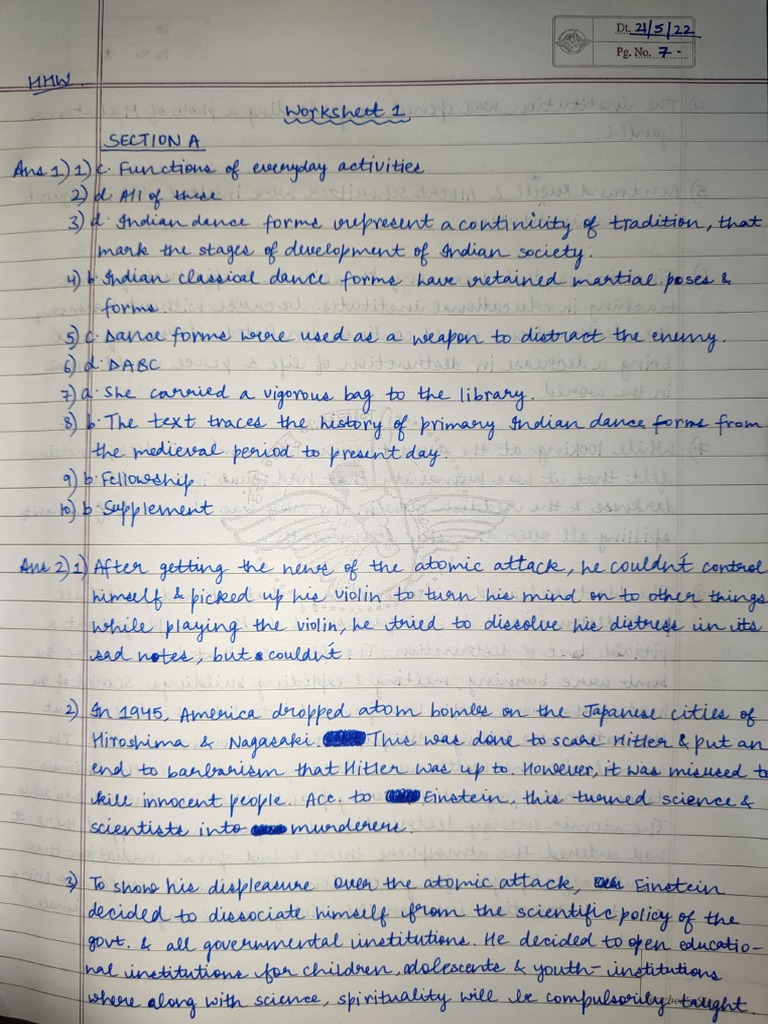 Dt. 21/5/22
Pg. No. 7.
HHW
Worksheet 1
SECTION A
Ans 1) 1) c. Functions of everyday activities
2) d. All of these
3) d. Indian dance forms represent a continuity of tradition, that
mark the stages of development of Indian society.
4) b. Indian classical dance forms have retained martial poses &
forms.
5) c. Dance forms were used as a weapon to distract the enemy.
6) d. DABC
7) a. She carried a vigorous bag to the library.
8) b. The text traces the history of primary Indian dance forms from
the medieval period to present day.
9) b. Fellowship
10) b. Supplement
Ans 2) 1) After getting the news of the atomic attack, he couldn't control
himself & picked up his violin to turn his mind on to other things
while playing the violin, he tried to dissolve his distress in its
sad notes, but couldn't.
2) In 1945, America dropped atom bombs on the Japanese cities of
Hiroshima & Nagasaki. This was done to scare Hitler & put an
end to barbarism that Hitler was up to. However, it was misused to
kill innocent people. Acc. to Einstein, this turned science &
scientists into murderers.
3) To show his displeasure over the atomic attack, Einstein
decided to dissociate himself from the scientific policy of the
govt. & all governmental institutions. He decided to open educatio-
nal institutions for children, adolescents & youth- institutions
where along with science, spirituality will be compulsorily taught.